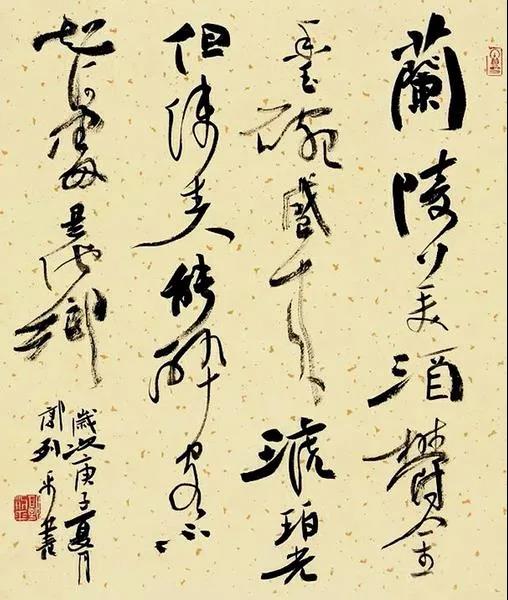 蘭陵美酒鬱金
香玉碗盛來琥珀光
但使主人能醉客不
知何處是他鄉
歲次庚子夏月
郭列平書